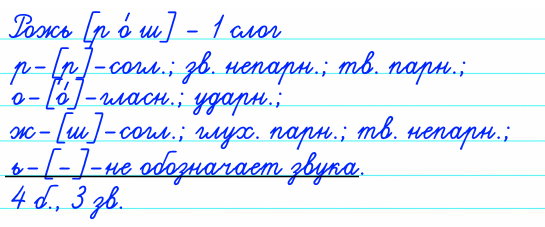 Рожь [р о́ ш] – 1 слог
р–[р]–согл.; зв. непарн.; тв. парн.;
о–[о́]–гласн.; ударн.;
ж–[ш]–согл.; глух. парн.; тв. непарн.;
ь–[–]–не обозначает звука.
4 б., 3 зв.